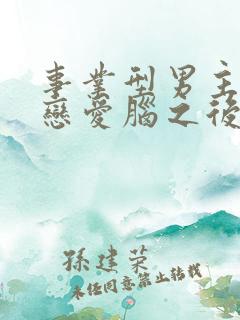 事業型男主
戀愛腦之後
孫建榮
未經同意禁止轉載